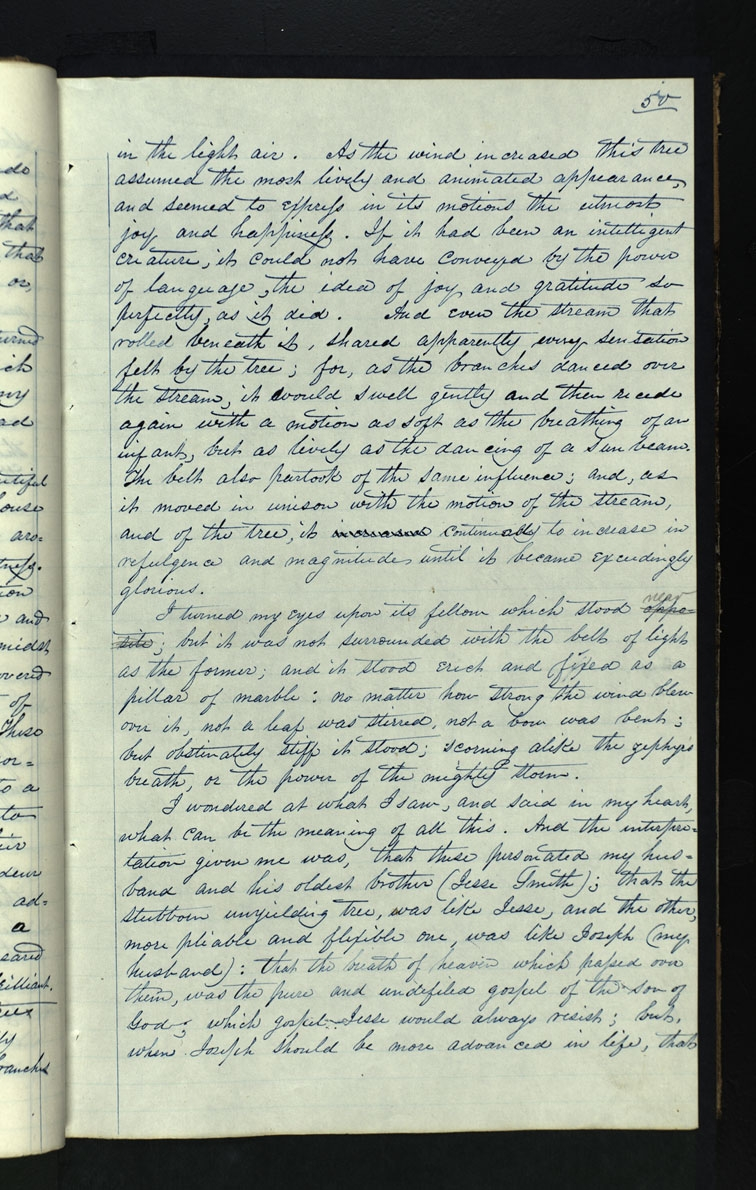 50
in the light air. As the wind increased this tree
assumed the most lively and animated appearance,
and seemed to express in its motions the utmost
joy and happiness. If it had been an intelligent
creature, it could not have conveyed by the power
of language, the idea of joy and gratitude so
perfectly, as it did. And even the stream that
rolled beneath it, shared apparently every sensation
felt by the tree; for, as the branches danced over
the stream, it would swell gently and then recede
again with a motion as soft as the breathing of an
infant, but as lively as the dancing of a sun beam.
The belt also partook of the same influence; and, as
it moved in unison with the motion of the stream,
and of the tree, it increased continually to increase in
refulgence and magnitude, until it became exceedingly
glorious.
near
I turned my eyes upon its fellow which stood oppo=
site; but it was not surrounded with the belt of light
as the former; and it stood erect and fixed as a
pillar of marble: no matter how strong the wind blew
over it, not a leaf was stirred, not a bow was bent;
but obstinately stiff it stood; scorning alike the zephyr's
breath, or the power of the mighty storm.
I wondered at what I saw, and said in my heart,
what can be the meaning of all this. And the interpre=
tation given me was, that these personated my hus=
band and his oldest brother (Jesse Smith); that the
stubborn unyielding tree, was like Jesse, and the other,
more pliable and flexible one, was like Joseph (my
husband): that the breath of heaven which passed over
them, was the pure and undefiled gospel of the son of
God; which gospel Jesse would always resist; but,
when Joseph should be more advanced in life, that